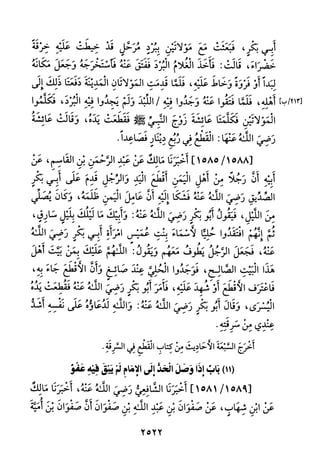 أَبِي بَكْرٍ، فَبَعَثَتْ مَعَ مَوْلَاتَيْنِ بِبُرْدٍ مُرَحَّلٍ قَدْ خِيطَتْ عَلَيْهِ خِرْقَةٌ
خَضْرَاءُ، قَالَتْ: فَأَخَذَ الْغُلَامُ الْبُرْدَ، فَفَتَقَ عَنْهُ فَاسْتَخْرَجَهُ وَجَعَلَ مَكَانَهُ
لِبَداً أَوْ فَرْوَةً وَخَاطَ عَلَيْهِ، فَلَمَّا قَدِمَتِ الْمَوْلَاتَانِ الْمَدِينَةَ دَفَعَتَا ذَلِكَ إِلَى
[٢١٣/ب] أَهْلِهِ، فَلَمَّا فَتَقُوا عَنْهُ وَجَدُوا فِيهِ / اللِّبْدَ وَلَمْ يَجِدُوا فِيْهِ الْبُرْدَ، فَكَلَّمُوا
الْمَوْلَاتَيْنِ فَكَلَّمَتَا عَائِشَةَ زَوْجَ النَّبِيِّ ﷺ فَقَطَعَتْ يَدَهُ، وَقَالَتْ عَائِشَةُ
رَضِيَ اللَّهُ عَنْهَا: الْقَطْعُ فِي رُبُعِ دِينَارٍ فَصَاعِداً.
[١٥٨٥/١٥٨٨] أَخْبَرَنَا مَالِكٌ عَنْ عَبْدِ الرَّحْمَنِ بْنِ القَاسِمِ، عَنْ
أَبِيْهِ أَنَّ رَجُلاً مِنْ أَهْلِ الْيَمَنِ أَقْطَعَ الْيَدِ وَالرِّجْلِ قَدِمَ عَلَى أَبِي بَكْرٍ
الصِّدِّيقِ رَضِيَ اللَّهُ عَنْهُ فَشَكَا إِلَيْهِ أَنَّ عَامِلَ الْيَمَنِ ظَلَمَهُ، وَكَانَ يُصَلِّي
مِنَ اللَّيْلِ، فَيَقُولُ أَبُو بَكْرٍ رَضِيَ اللَّهُ عَنْهُ: وَأَبِيْكَ مَا لَيْلُكَ بِلَيْلِ سَارِقٍ،
ثُمَّ إِنَّهُمْ افْتَقَدُوا حُلِيًّا لأَسْمَاءَ بِنْتِ عُمَيْسٍ امْرَأَةِ أَبِي بَكْرٍ رَضِيَ اللَّهُ
عَنْهُ، فَجَعَلَ الرَّجُلُ يَطُوفُ مَعَهُم وَيَقُولُ: اللَّهُمَّ عَلَيْكَ بِمَنْ بَيَّتَ أَهْلَ
هَذَا الْبَيْتِ الصَّالِحِ، فَوَجَدُوا الْحُلِيَّ عِنْدَ صَائِغٍ وَأَنَّ الأَقْطَعَ جَاءَ بِهِ،
فَاعْتَرَفَ الأَقْطَعُ أَوْ شُهِدَ عَلَيْهِ، فَأَمَرَ أَبُو بَكْرٍ رَضِيَ اللَّهُ عَنْهُ فَقُطِعَتْ يَدُهُ
الْيُسْرَى، وَقَالَ أَبُو بَكْرٍ رَضِيَ اللَّهُ عَنْهُ: وَاللَّهِ لَدُعَاؤُهُ عَلَى نَفْسِهِ أَشَدُّ
عِنْدِي مِنْ سَرِقَتِهِ.
أَخْرَجَ السَّبْعَةَ الأَحَادِيثَ مِنْ كِتَابِ الْقَطْعِ فِي السَّرِقَةِ.
(١١) بَابُ إِذَا وَصَلَ الْحَدُّ إِلَى الإِمَامِ لَمْ يَبْقَ فِيْهِ عَفْوٌ
[١٥٨١/١٥٨٩] أَخْبَرَنَا الشَّافِعِيُّ رَضِيَ اللَّهُ عَنْهُ، أَخْبَرَنَا مَالِكٌ
عَنْ ابْنِ شِهَابٍ، عَنْ صَفْوَانَ بْنِ عَبْدِ اللَّهِ بْنِ صَفْوَانَ أَنَّ صَفْوَانَ بْنَ أُمَيَّةَ
٢٥٢٢